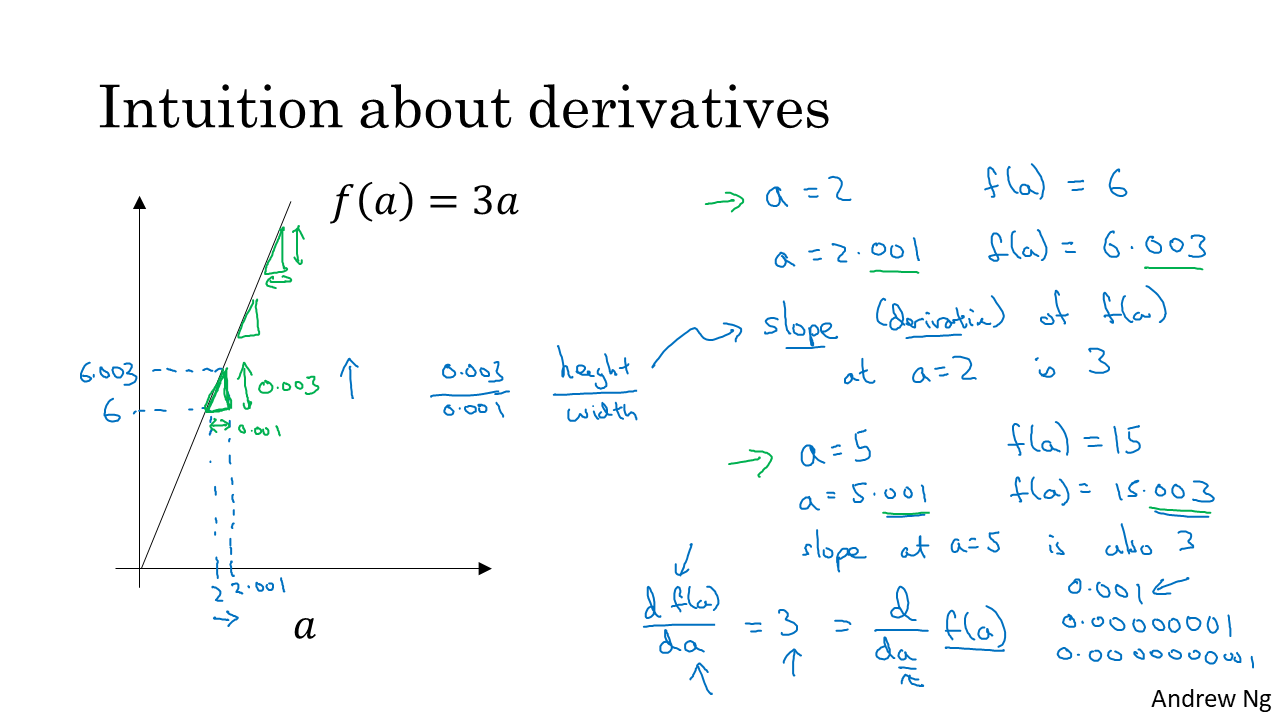 Intuition about derivatives
f(a) = 3a
6.003
6
0.003
0.001
2
2.001
a
0.003
0.001
height
width
a = 2 f(a) = 6
a = 2.001 f(a) = 6.003
slope (derivative) of f(a)
at a=2 is 3
a = 5 f(a) = 15
a = 5.001 f(a) = 15.003
slope at a=5 is also 3
d f(a)
da
= 3 =
d
da
f(a)
0.001
0.00000001
0.0000000001
Andrew Ng